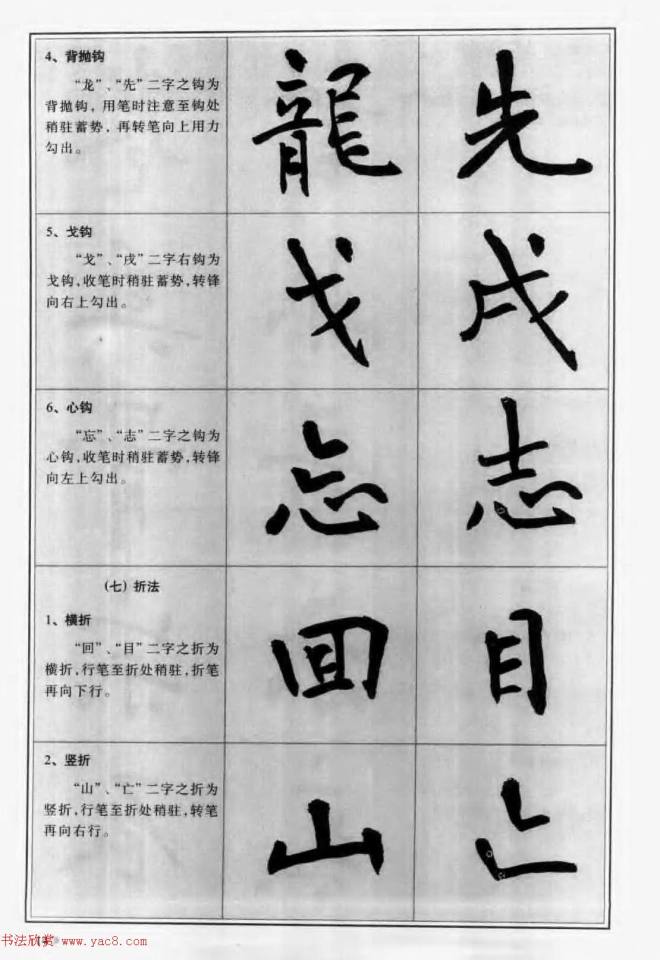 4、背抛钩
“龙”、“先”二字之钩为
背抛钩，用笔时注意至钩处
稍驻蓄势，再转笔向上用力
勾出。
龍 先
5、戈钩
“戈”、“戌”二字右钩为
戈钩,收笔时稍驻蓄势,转锋
向右上勾出。
戈 戌
6、心钩
“忘”、“志”二字之钩为
心钩,收笔时稍驻蓄势,转锋
向左上勾出。
忘 志
(七) 折法
1、横折
“回”、“目”二字之折为
横折,行笔至折处稍驻,折笔
再向下行。
回 目
2、竖折
“山”、“亡”二字之折为
竖折,行笔至折处稍驻,转笔
再向右行。
山 亡
书法欣赏 www.yac8.com